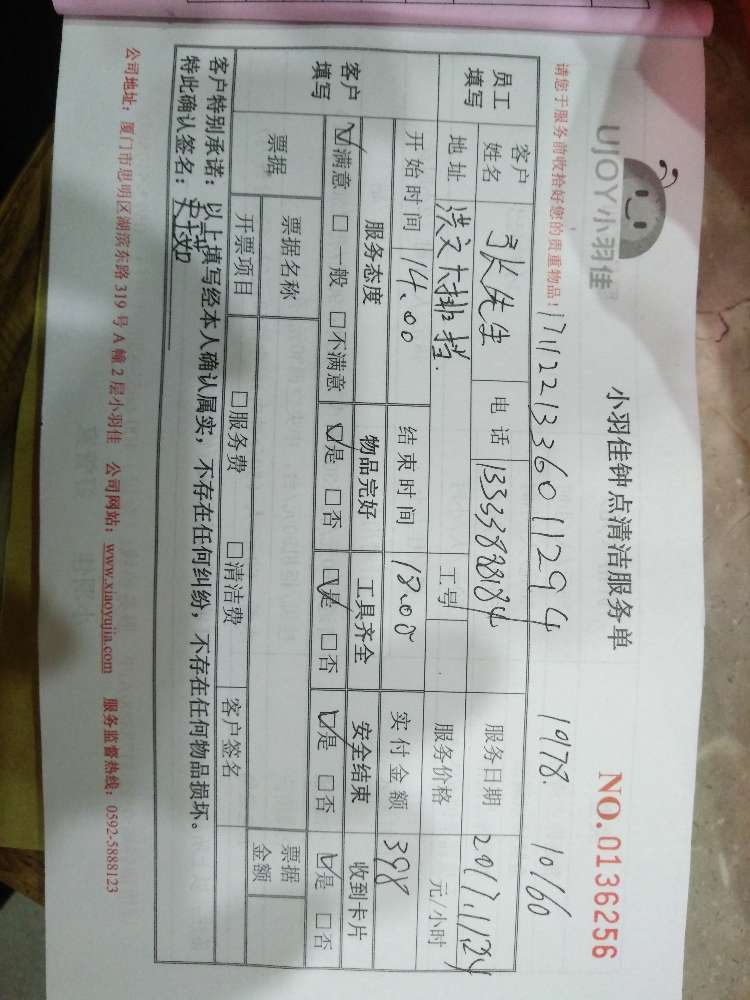 UJOY小羽佳
小羽佳钟点清洁服务单
NO.0136256
请您于服务前收拾好您的贵重物品！
171122133601294 1978. 10160
员工填写 客户姓名 张先生 电话 13338888184 服务日期 2017.11.24
地址 洪文大排挡. 工号 服务价格 元/小时
开始时间 14.00 结束时间 18.00 实付金额 398
客户填写 服务态度 物品完好 工具齐全 安全结束 收到卡片
☑满意 □一般 □不满意 ☑是 □否 ☑是 □否 ☑是 □否 ☑是 □否
票据 票据名称 票据金额
开票项目 □服务费 □清洁费 客户签名
客户特别承诺：以上填写经本人确认属实，不存在任何纠纷，不存在任何物品损坏。
特此确认签名：
公司地址：厦门市思明区湖滨东路319号A幢2层小羽佳 公司网站：www.xiaoyujia.com 服务监督热线：0592-5888123